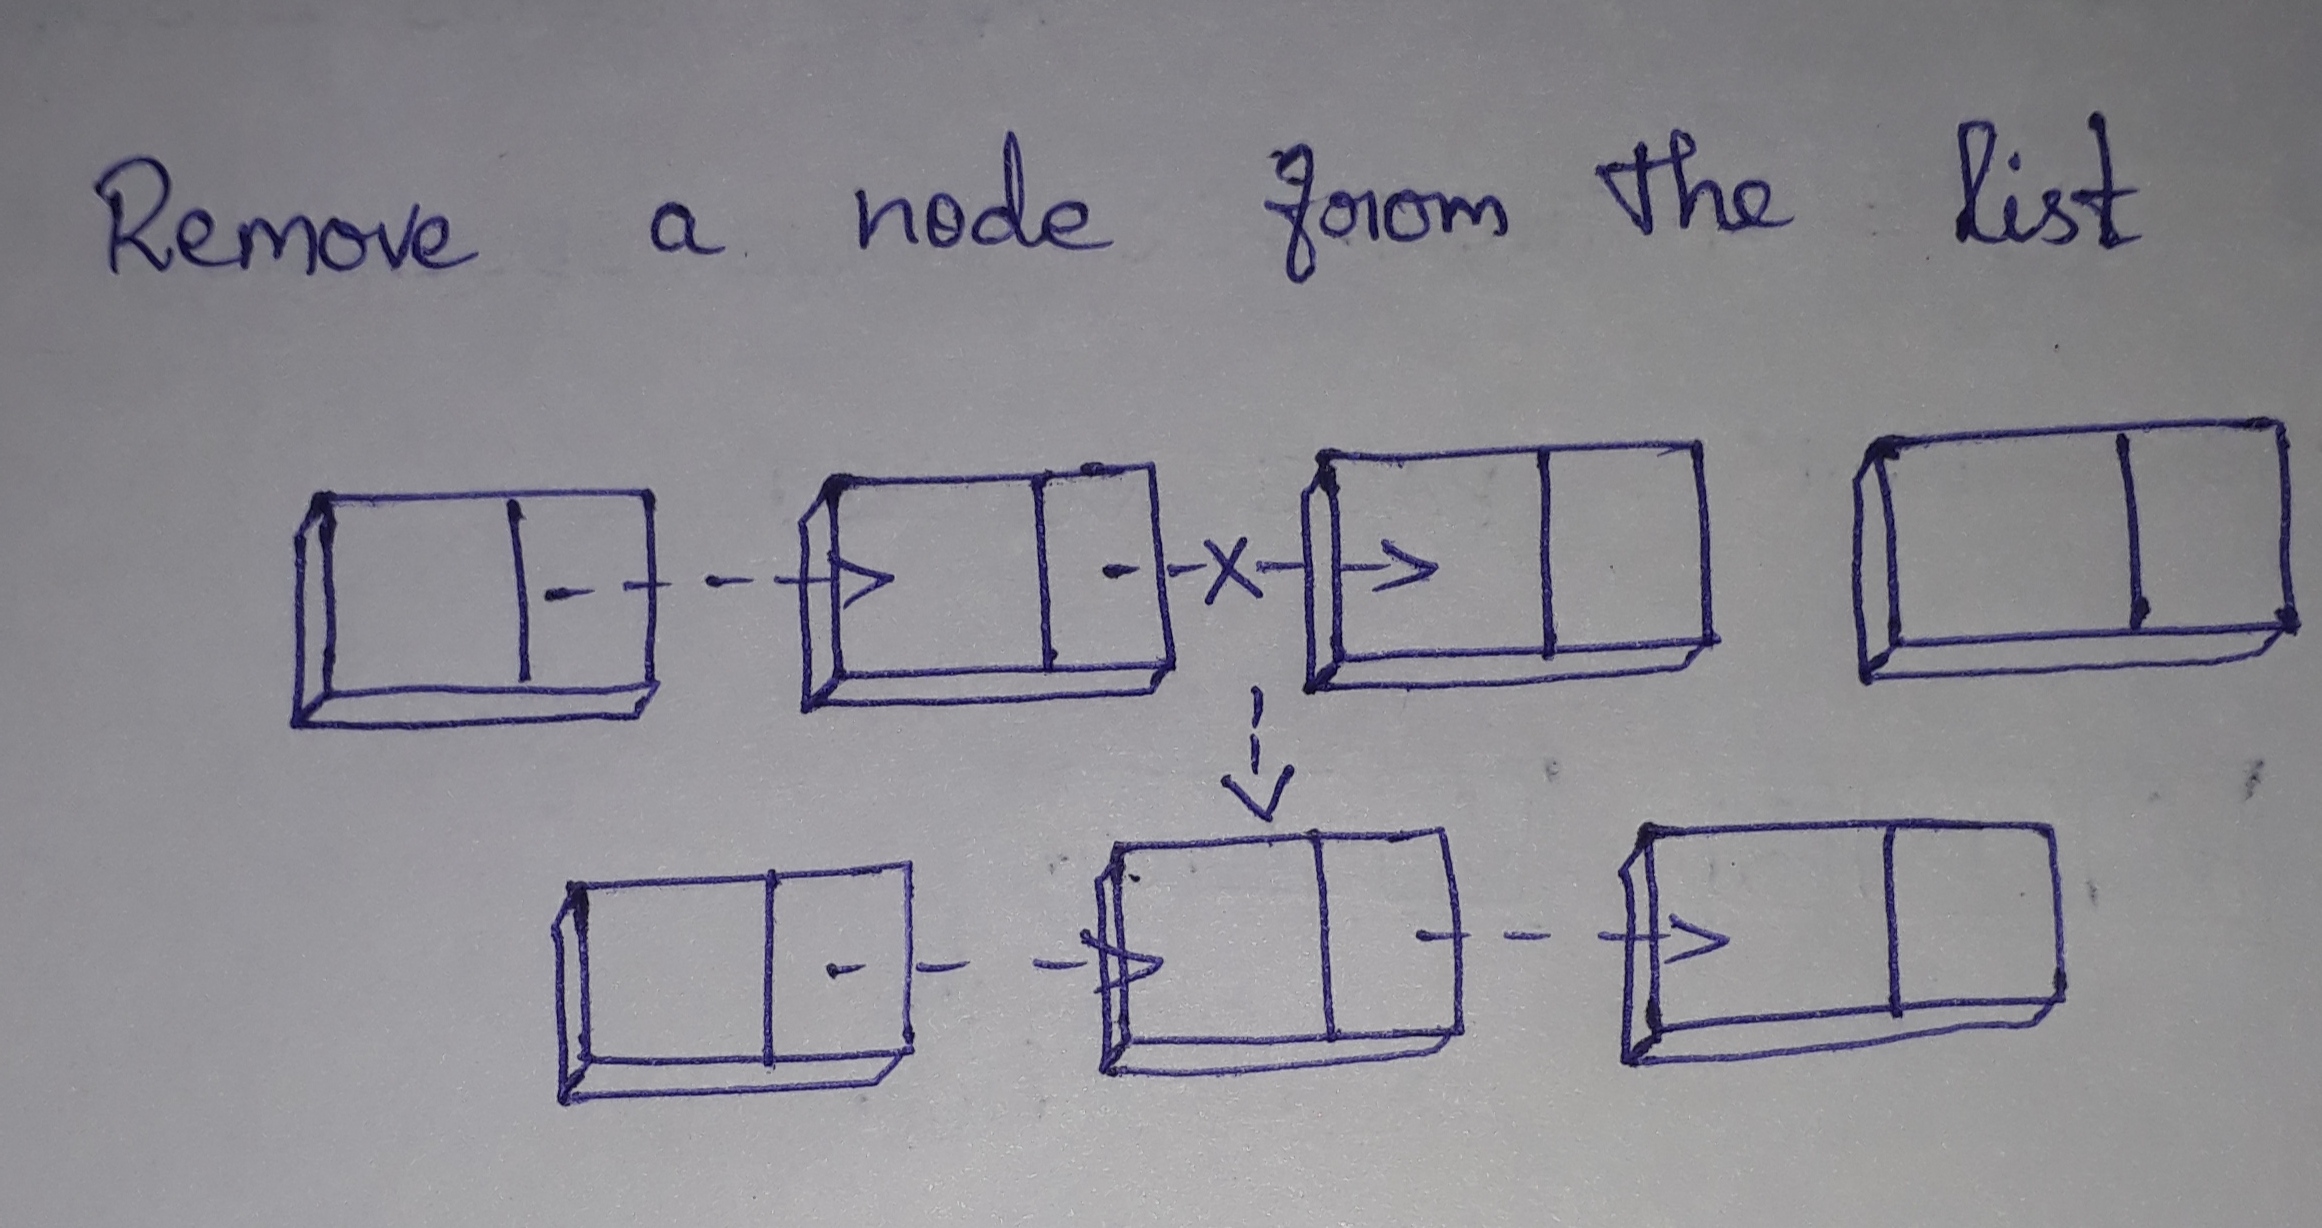 Remove a node from the list